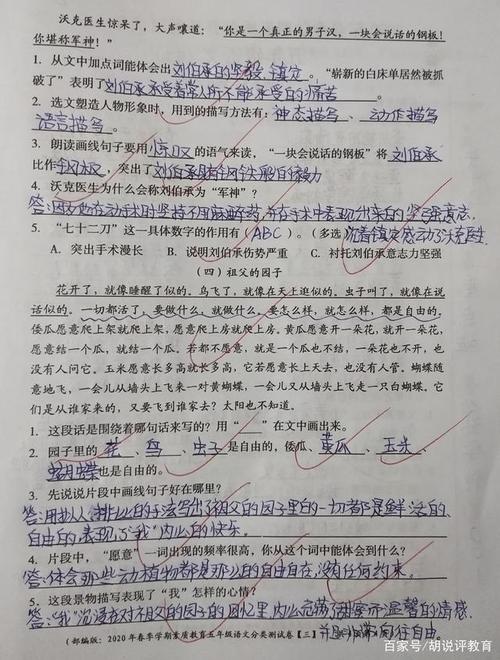 沃克医生惊呆了，大声嚷道：“你是一个真正的男子汉，一块会说话的钢板！
你堪称军神！”
1. 从文中加点词能体会出刘伯承的坚毅、镇定。“崭新的白床单居然被抓
破了”表明了刘伯承承受着常人所不能承受的痛苦。
2. 选文塑造人物形象时，用到的描写方法有：神态描写、动作描写
语言描写。
3. 朗读画线句子要用惊叹的语气来读，“一块会说话的钢板”将刘伯承
比作钢板，突出了刘伯承具有钢铁般的毅力
4. 沃克医生为什么会称刘伯承为“军神”？
答：因为他在动手术时坚持不用麻醉药，并在手术中表现出来的坚强意志，
沉着镇定感动了沃克医生
5. “七十二刀”这一具体数字的作用有（ABC）。（多选
A. 突出手术漫长 B. 说明刘伯承伤势严重 C. 衬托刘伯承意志力坚强
（四）祖父的园子
花开了，就像睡醒了似的。鸟飞了，就像在天上逛似的。虫子叫了，就像虫子在说
话似的。一切都活了，要做什么，就做什么。要怎么样，就怎么样，都是自由的。
倭瓜愿意爬上架就爬上架，愿意爬上房就爬上房。黄瓜愿意开一朵花，就开一朵花，
愿意结一个瓜，就结一个瓜。若都不愿意，就是一个瓜也不结，一朵花也不开，也
没有人问它。玉米愿意长多高就长多高，它若愿意长上天去，也没有人管。蝴蝶随
意地飞，一会儿从墙头上飞来一对黄蝴蝶，一会儿又从墙头上飞走一只白蝴蝶。它
们是从谁家来的，又要飞到谁家去？太阳也不知道。
1. 这段话是围绕着哪句话来写的？用“”在文中画出来。
2. 园子里的花、鸟、虫子是自由的，倭瓜、黄瓜、玉米、
蝴蝶也是自由的。
3. 先说说片段中画线句子好在哪里？
答：用拟人、排比的手法写出了祖父的园子里的一切都是鲜活的、
自由的，表现了“我”内心的快乐。
4. 片段中，“愿意”一词出现的频率很高，你从这个词中能体会到什么？
答：体会那些动植物都是那么的自由自在，没有任何约束。
5. 这段景物描写表现了“我”怎样的心情？
答：“我”沉浸在对祖父的园子的回忆里，内心充满甜蜜而温馨的情感，
并且非常向往自由。
（部编版：2020年春季学期素质教育五年级语文分类测试卷【三】
百家号/胡说评教育